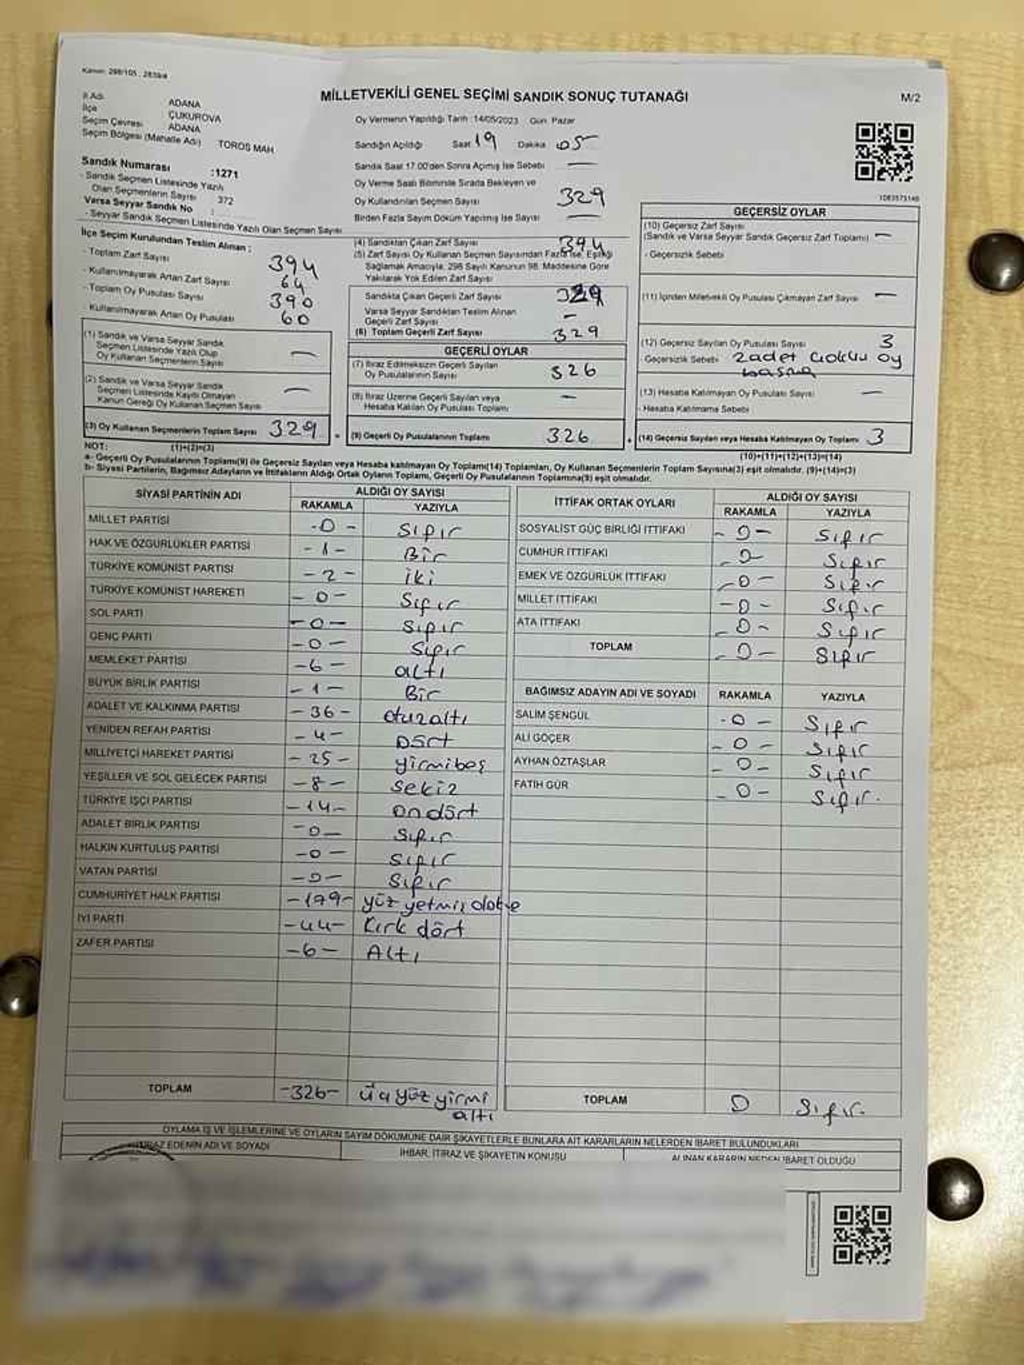 Kanun: 298/105, 283/a-a
MİLLETVEKİLİ GENEL SEÇİMİ SANDIK SONUÇ TUTANAĞI
M/2
İl Adı ADANA
İlçe ÇUKUROVA
Seçim Çevresi ADANA
Seçim Bölgesi (Mahalle Adı) TOROS MAH.
Sandık Numarası :1271
- Sandık Seçmen Listesinde Yazılı
Olan Seçmenlerin Sayısı 372
Varsa Seyyar Sandık No :
- Seyyar Sandık Seçmen Listesinde Yazılı Olan Seçmen Sayısı
Oy Vermenin Yapıldığı Tarih :14/05/2023 Gün: Pazar
Sandığın Açıldığı Saat 19 Dakika 05
Sandık Saat 17:00'den Sonra Açılmış İse Sebebi —
Oy Verme Saati Bitiminde Sırada Bekleyen ve
Oy Kullandırılan Seçmen Sayısı 329
Birden Fazla Sayım Döküm Yapılmış İse Sayısı —
1083573146
İlçe Seçim Kurulundan Teslim Alınan :
- Toplam Zarf Sayısı 394
- Kullanılmayarak Artan Zarf Sayısı 64
- Toplam Oy Pusulası Sayısı 390
- Kullanılmayarak Artan Oy Pusulası 60
(1) Sandık ve Varsa Seyyar Sandık
Seçmen Listesinde Yazılı Olup
Oy Kullanan Seçmenlerin Sayısı —
(2) Sandık ve Varsa Seyyar Sandık
Seçmen Listesinde Kaydı Olmayan
Kanun Gereği Oy Kullanan Seçmen Sayısı —
(3) Oy Kullanan Seçmenlerin Toplam Sayısı 329
(1)+(2)=(3)
(4) Sandıktan Çıkan Zarf Sayısı 394
(5) Zarf Sayısı Oy Kullanan Seçmen Sayısından Fazla İse, Eşitliği
Sağlamak Amacıyla, 298 Sayılı Kanunun 98. Maddesine Göre
Yakılarak Yok Edilen Zarf Sayısı
Sandıkta Çıkan Geçerli Zarf Sayısı 329
Varsa Seyyar Sandıktan Teslim Alınan
Geçerli Zarf Sayısı —
(6) Toplam Geçerli Zarf Sayısı 329
GEÇERLİ OYLAR
(7) İtiraz Edilmeksizin Geçerli Sayılan
Oy Pusulalarının Sayısı 326
(8) İtiraz Üzerine Geçerli Sayılan veya
Hesaba Katılan Oy Pusulası Toplamı —
= (9) Geçerli Oy Pusulalarının Toplamı 326
GEÇERSİZ OYLAR
(10) Geçersiz Zarf Sayısı
(Sandık ve Varsa Seyyar Sandık Geçersiz Zarf Toplamı) —
- Geçersizlik Sebebi
(11) İçinden Milletvekili Oy Pusulası Çıkmayan Zarf Sayısı —
(12) Geçersiz Sayılan Oy Pusulası Sayısı 3
Geçersizlik Sebebi 2 adet çoklu oy
basma
(13) Hesaba Katılmayan Oy Pusulası Sayısı —
- Hesaba Katılmama Sebebi
+ (14) Geçersiz Sayılan veya Hesaba Katılmayan Oy Toplamı 3
(10)+(11)+(12)+(13)=(14)
NOT:
a- Geçerli Oy Pusulalarının Toplamı(9) ile Geçersiz Sayılan veya Hesaba katılmayan Oy Toplamı(14) Toplamları, Oy Kullanan Seçmenlerin Toplam Sayısına(3) eşit olmalıdır. (9)+(14)=(3)
b- Siyasi Partilerin, Bağımsız Adayların ve İttifakların Aldığı Ortak Oyların Toplamı, Geçerli Oy Pusulalarının Toplamına(9) eşit olmalıdır.
SİYASİ PARTİNİN ADI ALDIĞI OY SAYISI
RAKAMLA YAZIYLA
MİLLET PARTİSİ -0- Sıfır
HAK VE ÖZGÜRLÜKLER PARTİSİ -1- Bir
TÜRKİYE KOMÜNİST PARTİSİ -2- iki
TÜRKİYE KOMÜNİST HAREKETİ -0- Sıfır
SOL PARTİ -0- Sıfır
GENÇ PARTİ -0- Sıfır
MEMLEKET PARTİSİ -6- altı
BÜYÜK BİRLİK PARTİSİ -1- Bir
ADALET VE KALKINMA PARTİSİ -36- otuzaltı
YENİDEN REFAH PARTİSİ -4- Dört
MİLLİYETÇİ HAREKET PARTİSİ -25- yirmibeş
YEŞİLLER VE SOL GELECEK PARTİSİ -8- sekiz
TÜRKİYE İŞÇİ PARTİSİ -14- ondört
ADALET BİRLİK PARTİSİ -0- Sıfır
HALKIN KURTULUŞ PARTİSİ -0- Sıfır
VATAN PARTİSİ -0- Sıfır
CUMHURİYET HALK PARTİSİ -179- yüz yetmiş dokuz
İYİ PARTİ -44- Kırk dört
ZAFER PARTİSİ -6- Altı
TOPLAM -326- üçyüz yirmi
altı
İTTİFAK ORTAK OYLARI ALDIĞI OY SAYISI
RAKAMLA YAZIYLA
SOSYALİST GÜÇ BİRLİĞİ İTTİFAKI -0- Sıfır
CUMHUR İTTİFAKI -0- Sıfır
EMEK VE ÖZGÜRLÜK İTTİFAKI -0- Sıfır
MİLLET İTTİFAKI -0- Sıfır
ATA İTTİFAKI -0- Sıfır
TOPLAM -0- Sıfır
BAĞIMSIZ ADAYIN ADI VE SOYADI RAKAMLA YAZIYLA
SALİM ŞENGÜL -0- Sıfır
ALİ GÖÇER -0- Sıfır
AYHAN ÖZTAŞLAR -0- Sıfır
FATİH GÜR -0- Sıfır.
TOPLAM 0 Sıfır.
OYLAMA İŞ VE İŞLEMLERİNE VE OYLARIN SAYIM DÖKÜMÜNE DAİR ŞİKAYETLERLE BUNLARA AİT KARARLARIN NELERDEN İBARET BULUNDUKLARI
İTİRAZ EDENİN ADI VE SOYADI
İHBAR, İTİRAZ VE ŞİKAYETİN KONUSU
ALINAN KARARIN NEDEN İBARET OLDUĞU